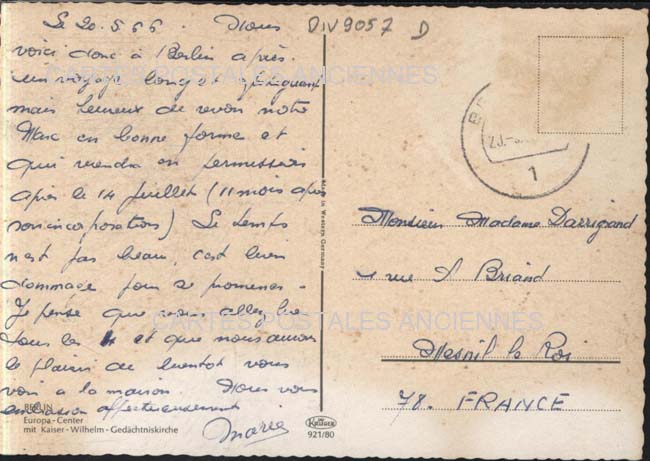 Le 20.5.66. Nous
voici donc à Berlin après
un voyage long et fatiguant
mais heureux de revoir notre
Marc en bonne forme et
qui viendra en permission
après le 14 juillet (11 mois après
son incorporation) Le temps
n'est pas beau, c'est bien
dommage pour se promener.
Je pense que vous allez bien
tous les 4 et que nous aurons
le plaisir de bientôt vous
voir à la maison. Nous vous
embrassons affectueusement
Marie
BERLIN
Europa-Center
mit Kaiser-Wilhelm-Gedächtniskirche
KRÜGER
921/80
Made in Western Germany
DIV9057 D
1
Monsieur Madame Darrigrand
rue A Briand
Mesnil le Roi
78. FRANCE
CARTES POSTALES ANCIENNES
CARTES POSTALES ANCIENNES